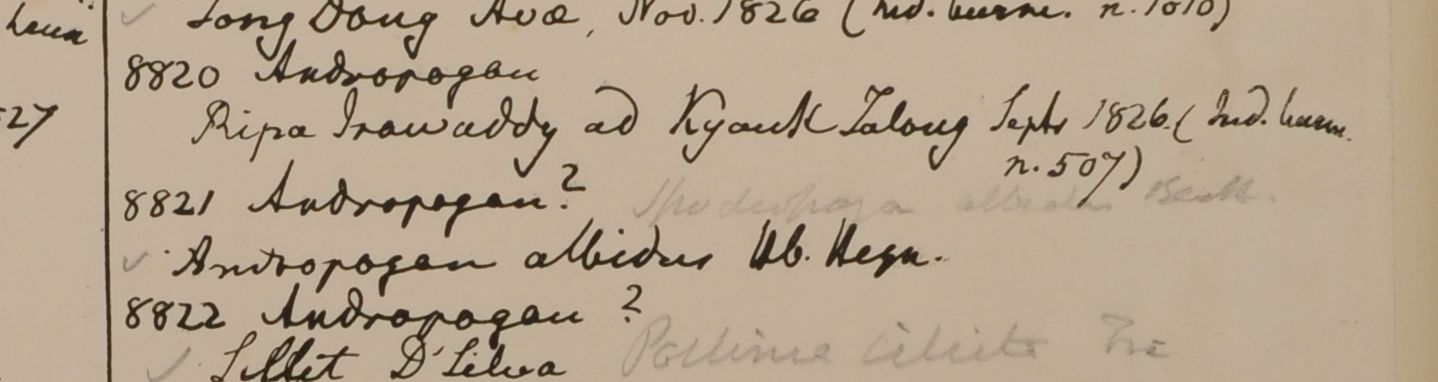 Tong Dong Ava, Nov. 1826 (Ind. burm. n. 1010)
8820 Andropogon
27
Ripa Irawaddy ad Kyouk Talong Septr 1826 (Ind. burm.
n. 507)
8821 Andropogon? Spodiopogon albidus Benth.
Andropogon albidus Hb. Heyn.
8822 Andropogon ?
Sillet D'Silva Pollinia ciliata Trin